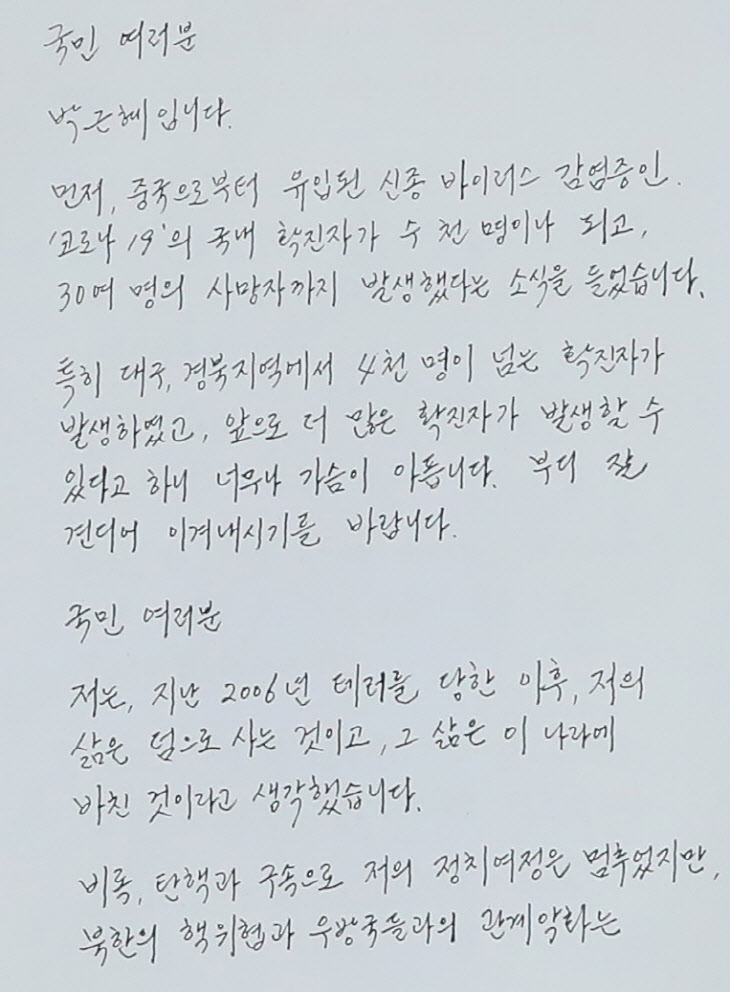 국민 여러분
박근혜입니다.
먼저, 중국으로부터 유입된 신종 바이러스 감염증인.
'코로나19'의 국내 확진자가 수 천 명이나 되고,
30여 명의 사망자까지 발생했다는 소식을 들었습니다.
특히 대구, 경북지역에서 4천 명이 넘는 확진자가
발생하였고, 앞으로 더 많은 확진자가 발생할 수
있다고 하니 너무나 가슴이 아픕니다. 부디 잘
견디어 이겨내시기를 바랍니다.
국민 여러분
저는, 지난 2006년 테러를 당한 이후, 저의
삶은 덤으로 사는 것이고, 그 삶은 이 나라에
바친 것이라고 생각했습니다.
비록, 탄핵과 구속으로 저의 정치여정은 멈추었지만,
북한의 핵위협과 우방국들과의 관계악화는